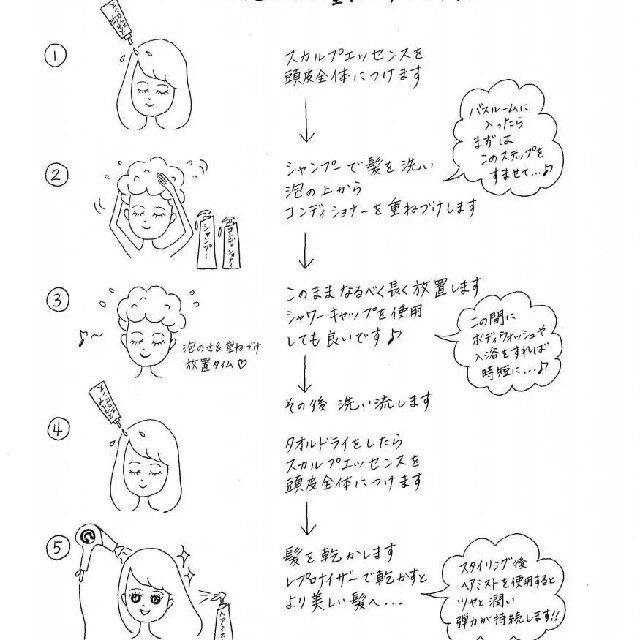 ①
スカルプエッセンスを
頭皮全体につけます
バスルームに
入ったら
まずは
このステップを
すませて...♪
②
シャンプーで髪を洗い
泡の上から
コンディショナーを重ねづけします
シャンプー
コンディショナー
③
このままなるべく長く放置します
シャワーキャップを使用
しても良いです♪
泡のせ&重ねづけ
放置タイム♡
この間に
ボディウォッシュや
入浴をすれば
時短に...♪
その後 洗い流します
④
タオルドライをしたら
スカルプエッセンスを
頭皮全体につけます
⑤
髪を乾かします
レプロナイザーで乾かすと
より美しい髪へ...
スタイリング後
ヘアミストを使用すると
ツヤと潤い
弾力が持続します!!